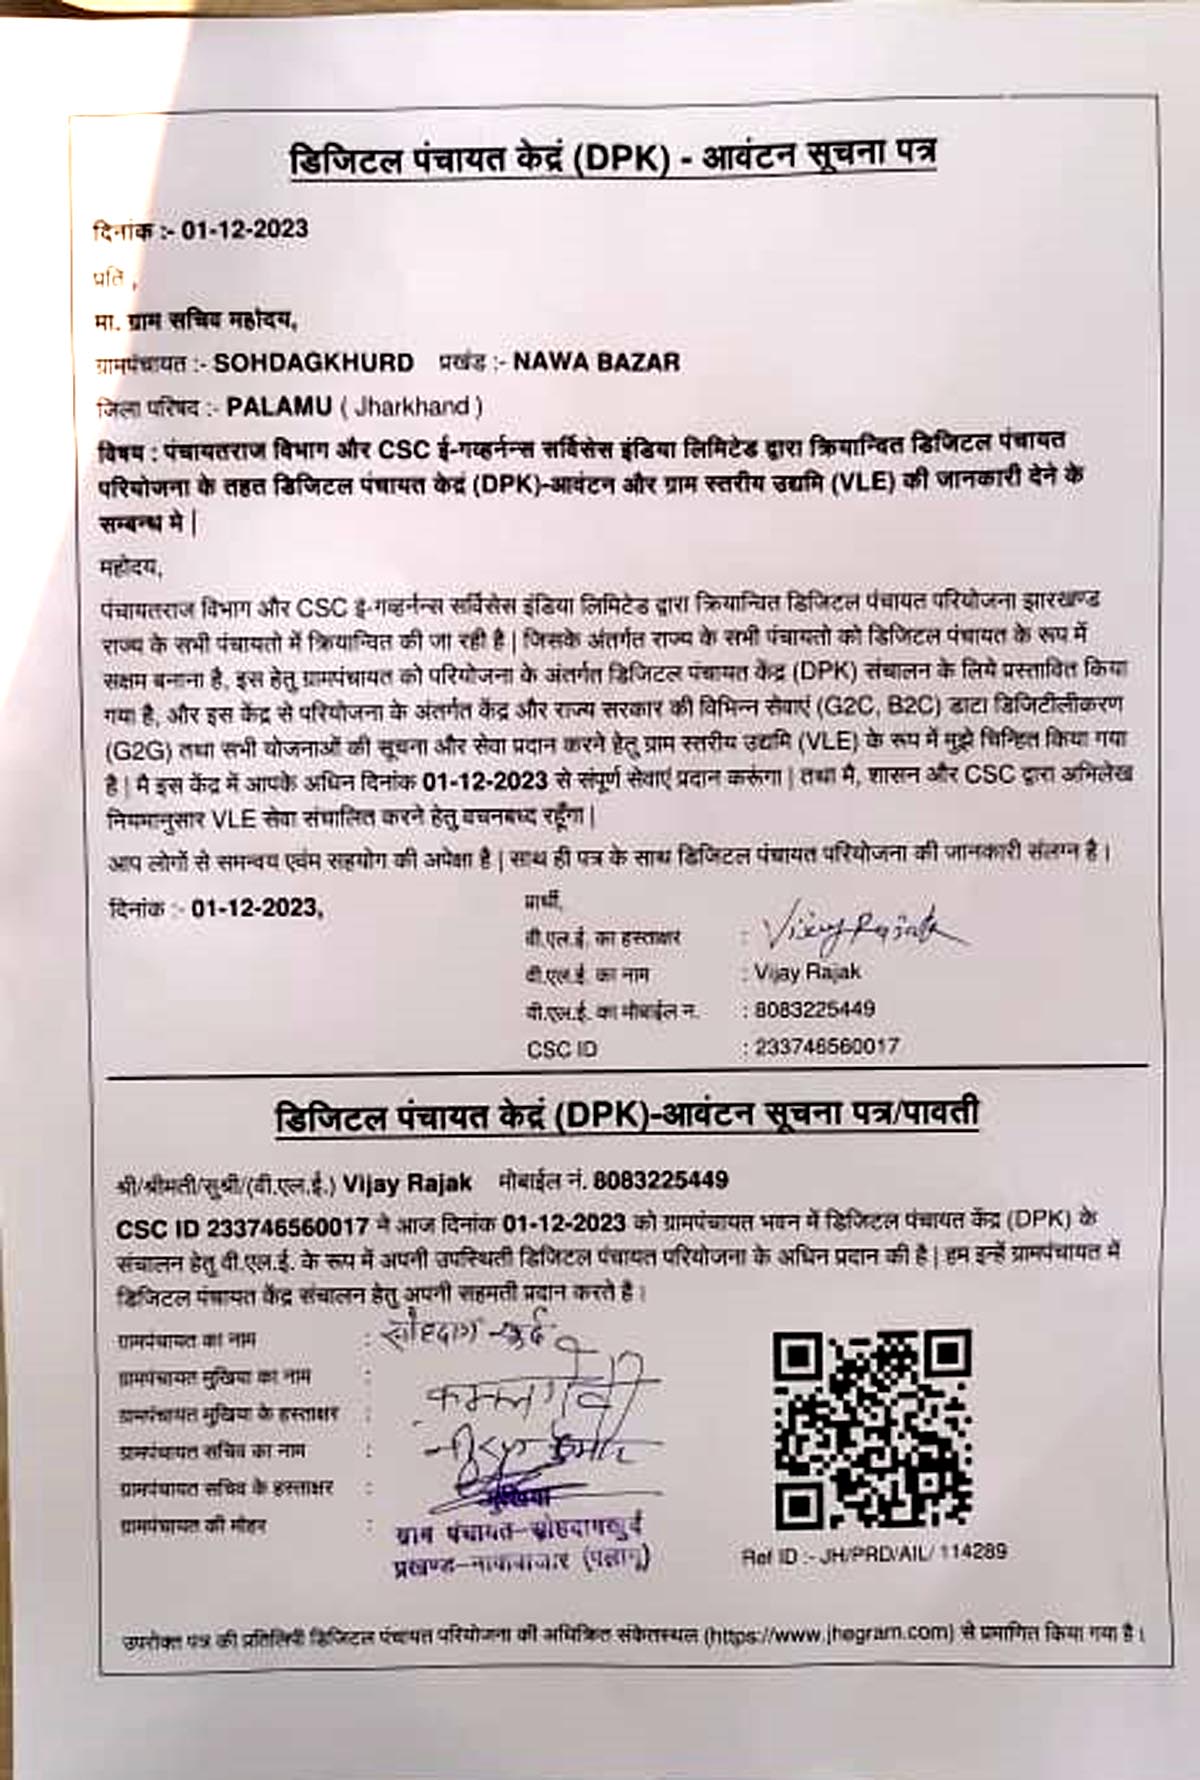 डिजिटल पंचायत केद्रं (DPK) - आवंटन सूचना पत्र
दिनांक :- 01-12-2023
प्रति ,
मा. ग्राम सचिव महोदय,
ग्रामपंचायत :- SOHDAGKHURD प्रखंड :- NAWA BAZAR
जिला परिषद :- PALAMU ( Jharkhand )
विषय : पंचायतराज विभाग और CSC ई-गव्हर्नन्स सर्विसेस इंडिया लिमिटेड द्वारा क्रियान्वित डिजिटल पंचायत
परियोजना के तहत डिजिटल पंचायत केद्रं (DPK)-आवंटन और ग्राम स्तरीय उद्यमि (VLE) की जानकारी देने के
सम्बन्ध मे |
महोदय,
पंचायतराज विभाग और CSC ई-गव्हर्नन्स सर्विसेस इंडिया लिमिटेड द्वारा क्रियान्वित डिजिटल पंचायत परियोजना झारखण्ड
राज्य के सभी पंचायतो में क्रियान्वित की जा रही है | जिसके अंतर्गत राज्य के सभी पंचायतो को डिजिटल पंचायत के रूप में
सक्षम बनाना है, इस हेतु ग्रामपंचायत को परियोजना के अंतर्गत डिजिटल पंचायत केंद्र (DPK) संचालन के लिये प्रस्तावित किया
गया है, और इस केंद्र से परियोजना के अंतर्गत केंद्र और राज्य सरकार की विभिन्न सेवाएं (G2C, B2C) डाटा डिजिटीलीकरण
(G2G) तथा सभी योजनाओं की सूचना और सेवा प्रदान करने हेतु ग्राम स्तरीय उद्यमि (VLE) के रूप में मुझे चिन्हित किया गया
है | मै इस केंद्र में आपके अधिन दिनांक 01-12-2023 से संपूर्ण सेवाएं प्रदान करूंगा | तथा मै, शासन और CSC द्वारा अभिलेख
नियमानुसार VLE सेवा संचालित करने हेतु वचनबध्द रहूँगा |
आप लोगों से समन्वय एवंम सहयोग की अपेक्षा है | साथ ही पत्र के साथ डिजिटल पंचायत परियोजना की जानकारी संलग्न है |
दिनांक :- 01-12-2023,
प्रार्थी,
वी.एल.ई. का हस्ताक्षर : Vijay Rajak
वी.एल.ई. का नाम : Vijay Rajak
वी.एल.ई. का मोबाईल न. : 8083225449
CSC ID : 233746560017
डिजिटल पंचायत केद्रं (DPK)-आवंटन सूचना पत्र/पावती
श्री/श्रीमती/सुश्री/(वी.एल.ई.) Vijay Rajak मोबाईल नं. 8083225449
CSC ID 233746560017 ने आज दिनांक 01-12-2023 को ग्रामपंचायत भवन में डिजिटल पंचायत केंद्र (DPK) के
संचालन हेतु वी.एल.ई. के रूप में अपनी उपस्थिती डिजिटल पंचायत परियोजना के अधिन प्रदान की है | हम इन्हें ग्रामपंचायत में
डिजिटल पंचायत केंद्र संचालन हेतु अपनी सहमती प्रदान करते है |
ग्रामपंचायत का नाम : सोहदाग खुर्द
ग्रामपंचायत मुखिया का नाम :
ग्रामपंचायत मुखिया के हस्ताक्षर :
ग्रामपंचायत सचिव का नाम : कुमार
ग्रामपंचायत सचिव के हस्ताक्षर :
मुखिया
ग्रामपंचायत की मोहर :
ग्राम पंचायत-सोहदागखुर्द
प्रखण्ड-नावाबाजार (पलामू)
Ref ID :- JH/PRD/AIL/ 114289
उपरोक्त पत्र की प्रतिलिपी डिजिटल पंचायत परियोजना की अधिक्रित संकेतस्थल (https://www.jhegram.com) से प्रमाणित किया गया है |